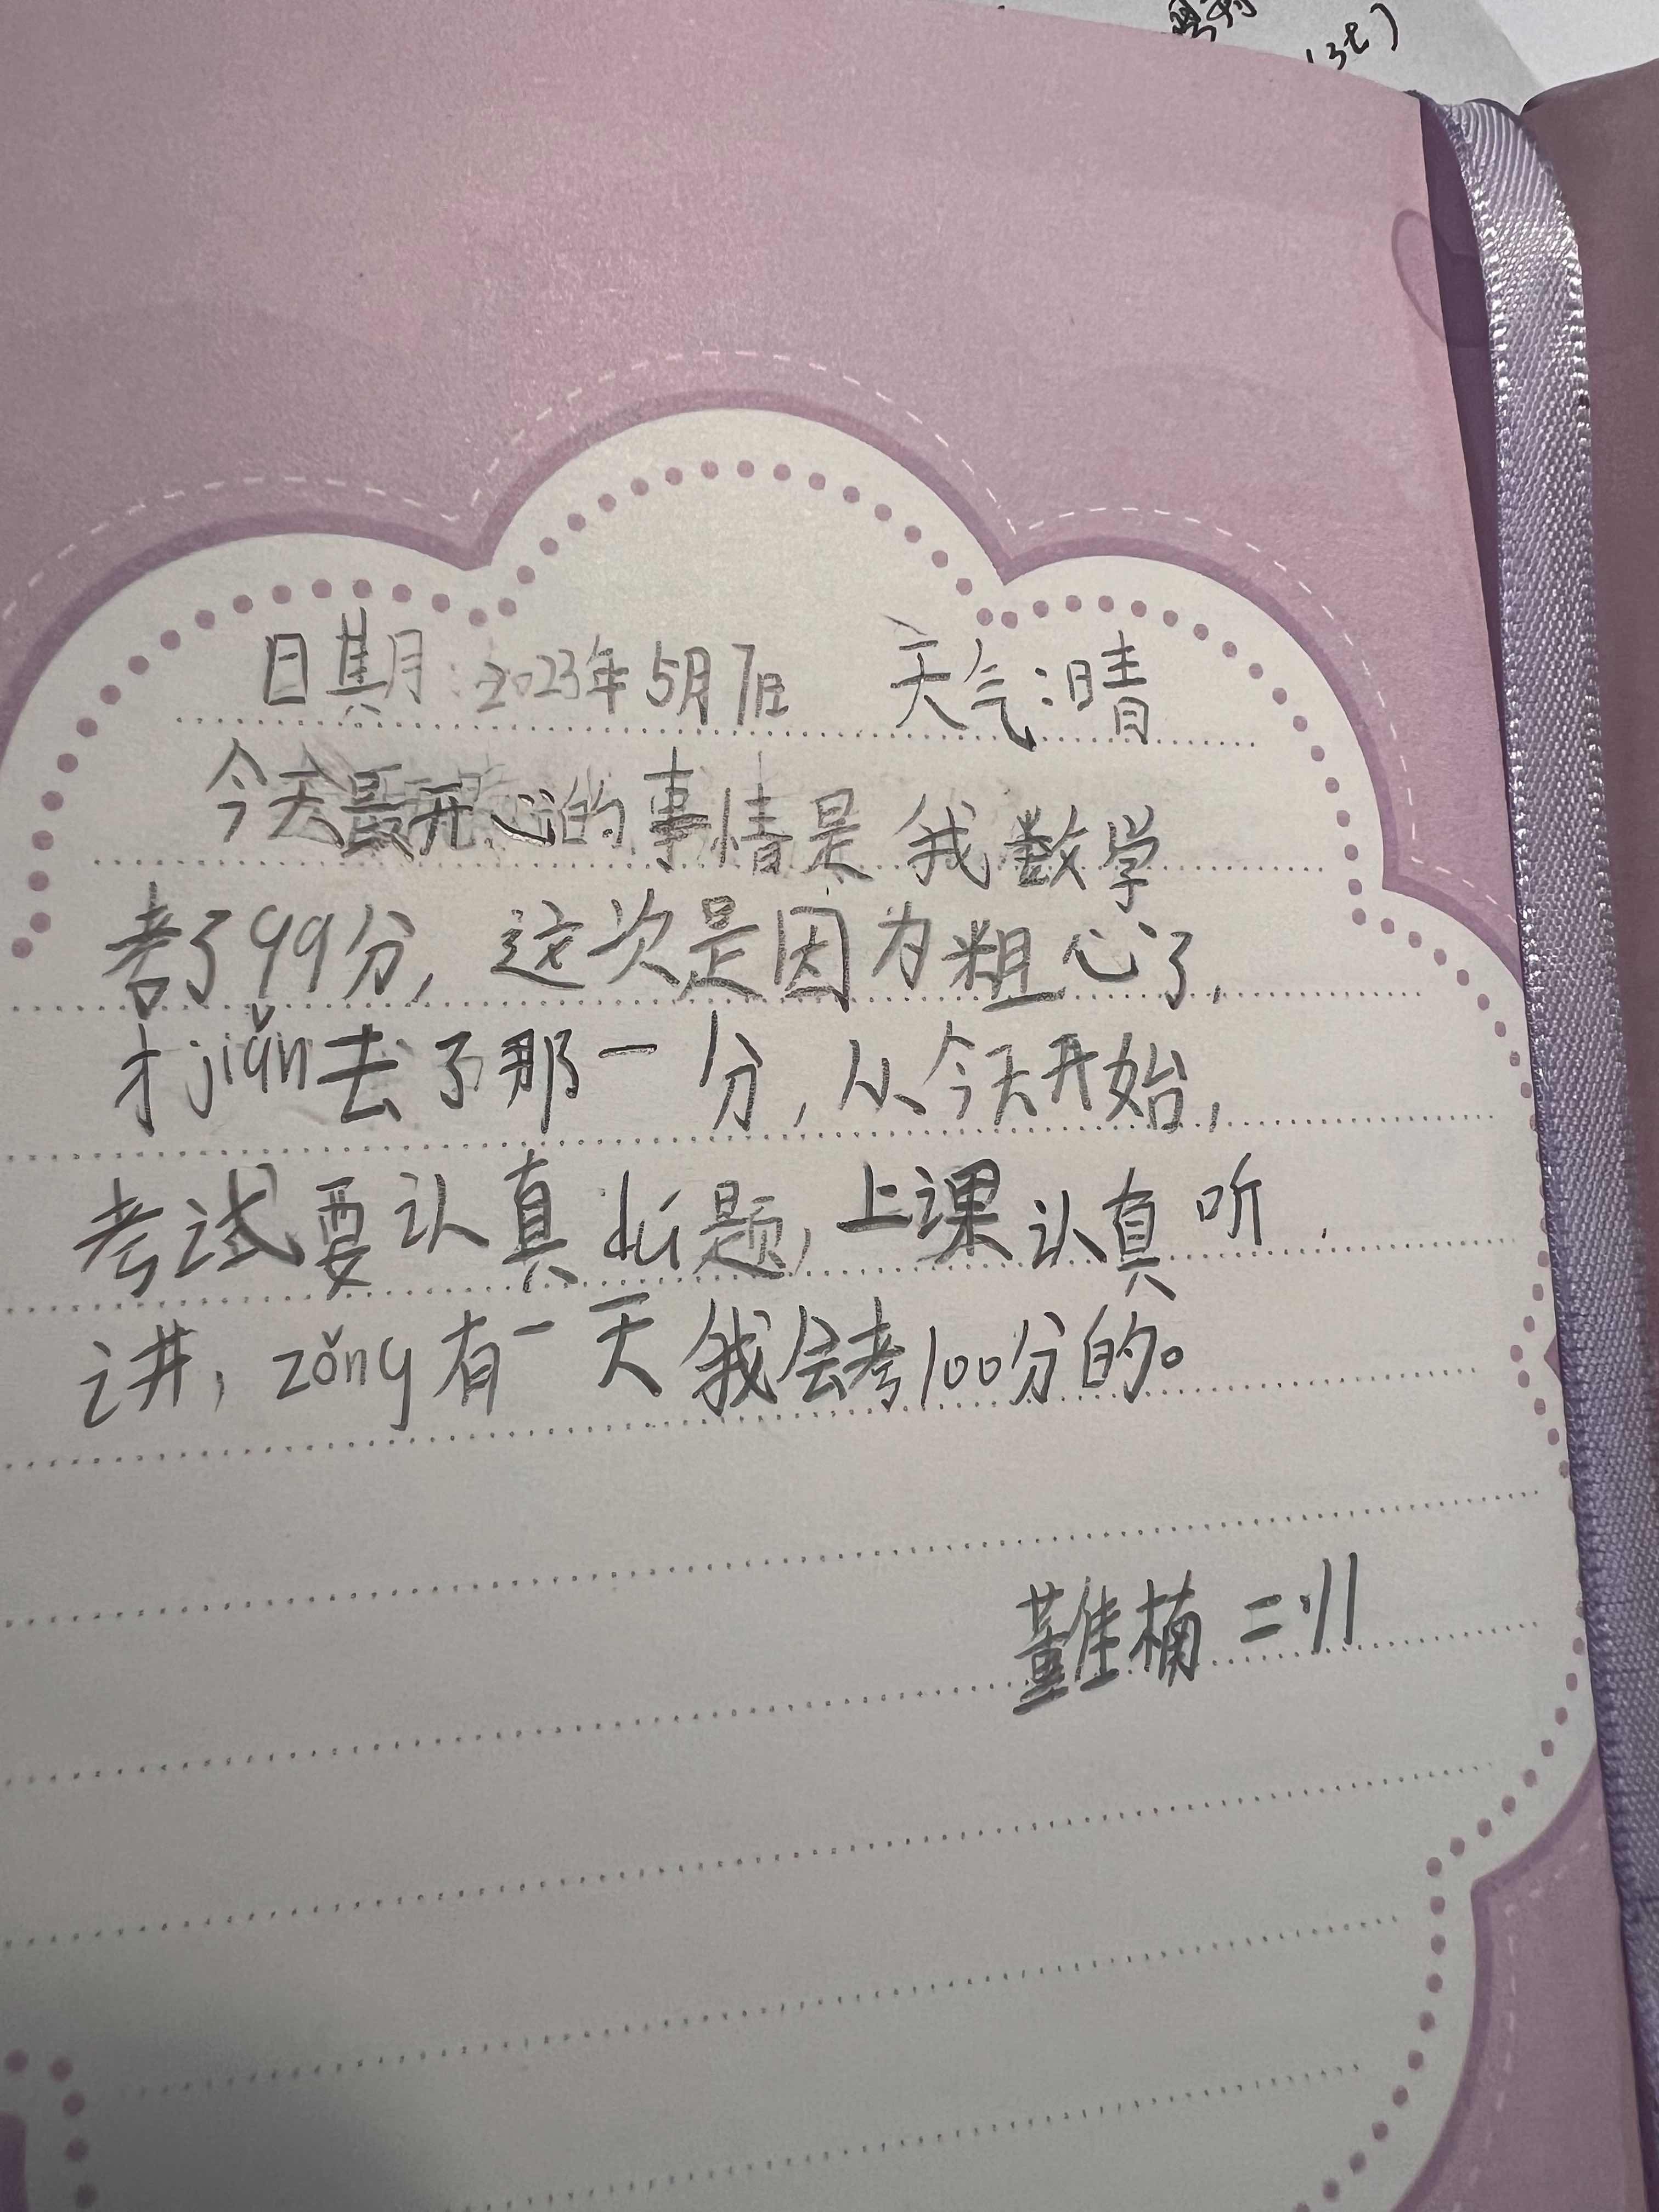 日期:2023年5月7日 天气:晴
今天最开心的事情是我数学
考了99分,这次是因为粗心了,
才jiǎn去了那一分,从今天开始,
考试要认真dú题,上课认真听
讲,zǒng有一天我会考100分的。
楠 二